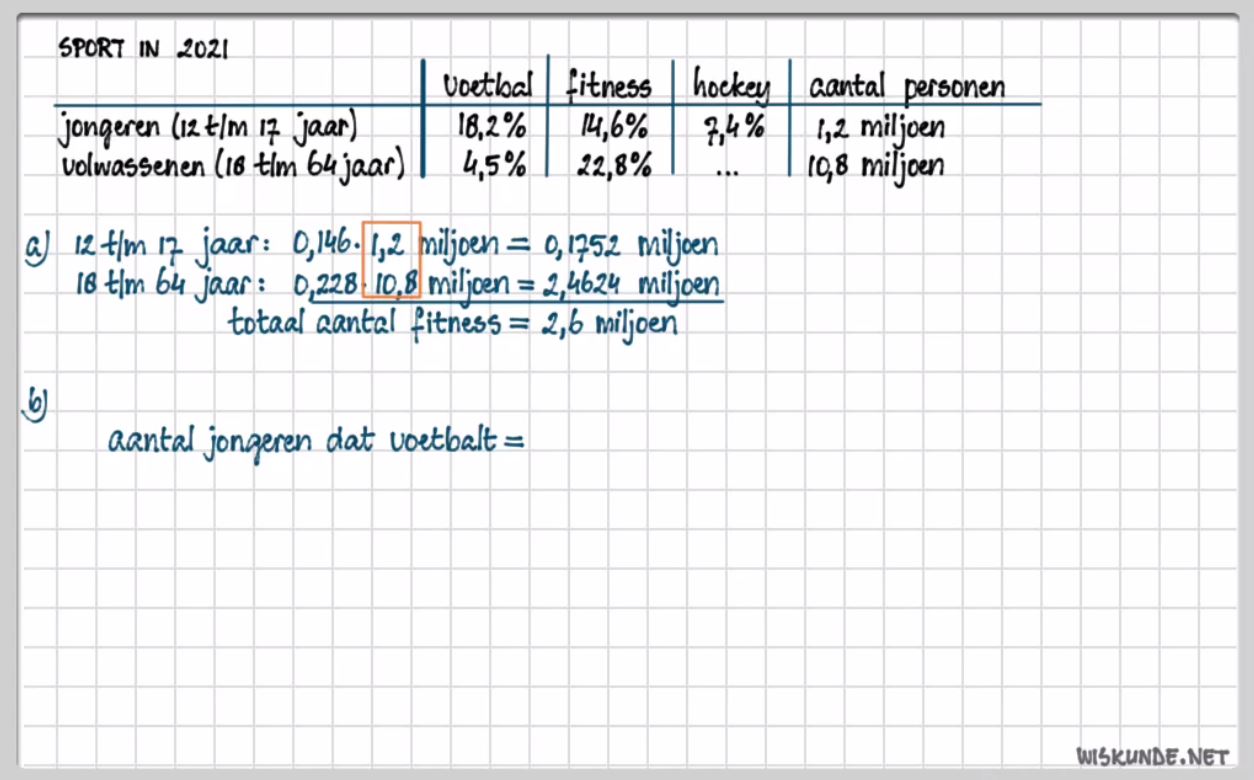 SPORT IN 2021
voetbal fitness hockey aantal personen
jongeren (12 t/m 17 jaar) 18,2% 14,6% 7,4% 1,2 miljoen
volwassenen (18 t/m 64 jaar) 4,5% 22,8% ... 10,8 miljoen
a) 12 t/m 17 jaar: 0,146 · 1,2 miljoen = 0,1752 miljoen
18 t/m 64 jaar: 0,228 · 10,8 miljoen = 2,4624 miljoen
totaal aantal fitness = 2,6 miljoen
b)
aantal jongeren dat voetbalt =
WISKUNDE.NET